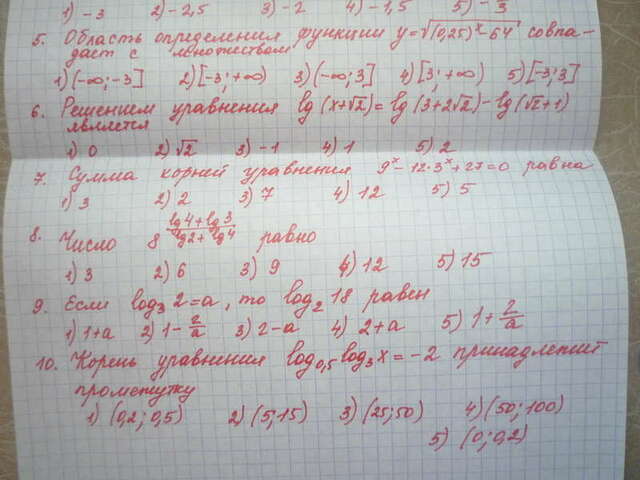 1) -3 2) -2,5 3) -2 4) -1,5 5) -1/3
5. Область определения функции y=√((0,25)^x - 64) совпа-
дает с множеством
1) (-∞; -3] 2) [-3; +∞) 3) (-∞; 3] 4) [3; +∞) 5) [-3; 3]
6. Решением уравнения lg(x+√2) = lg(3+2√2) - lg(√2+1)
является
1) 0 2) √2 3) -1 4) 1 5) 2
7. Сумма корней уравнения 9^x - 12·3^x + 27 = 0 равна
1) 3 2) 2 3) 7 4) 12 5) 5
8. Число 8^((lg4+lg3)/(lg2+lg4)) равно
1) 3 2) 6 3) 9 4) 12 5) 15
9. Если log₃2=a, то log₂18 равен
1) 1+a 2) 1-2/a 3) 2-a 4) 2+a 5) 1+2/a
10. Корень уравнения log₀,₅log₃x = -2 принадлежит
промежутку
1) (0,2; 0,5) 2) (5; 15) 3) (25; 50) 4) (50; 100)
5) (0; 0,2)